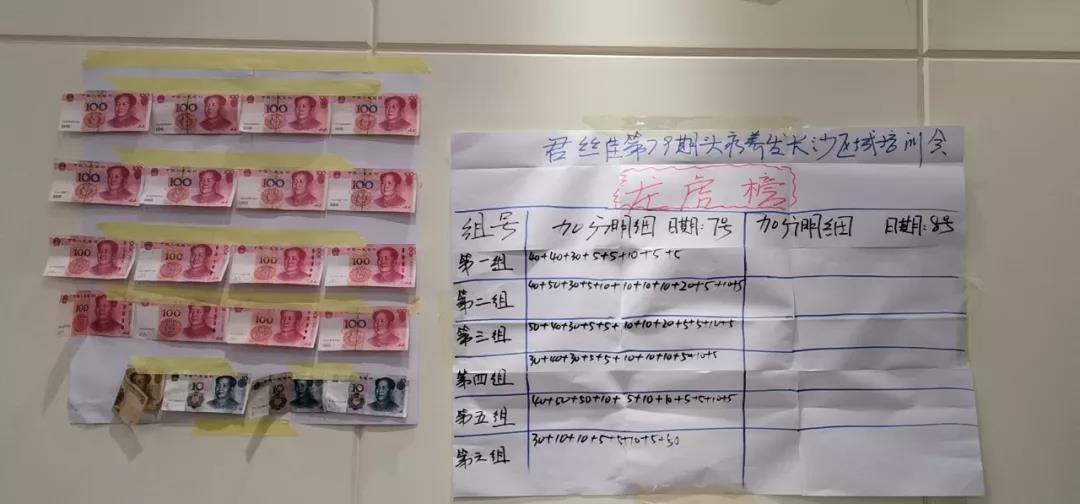 100 100 100 100
100 100 100 100
100 100 100 100
100 100 100 100
10 10 10
君丝佳第79期头疗养发长沙区域培训会
龙虎榜
组号 加分明细 日期:7号 加分明细 日期:8号
第一组 40+40+30+5+5+10+5+5
第二组 40+50+30+5+10+10+10+10+20+5+10+5
第三组 50+40+30+5+5+10+10+20+5+5+10+5
第四组 30+40+30+5+5+10+10+10+5+10+5
第五组 40+50+30+10+5+10+10+5+5+10+5
第六组 30+10+10+5+5+10+5+30